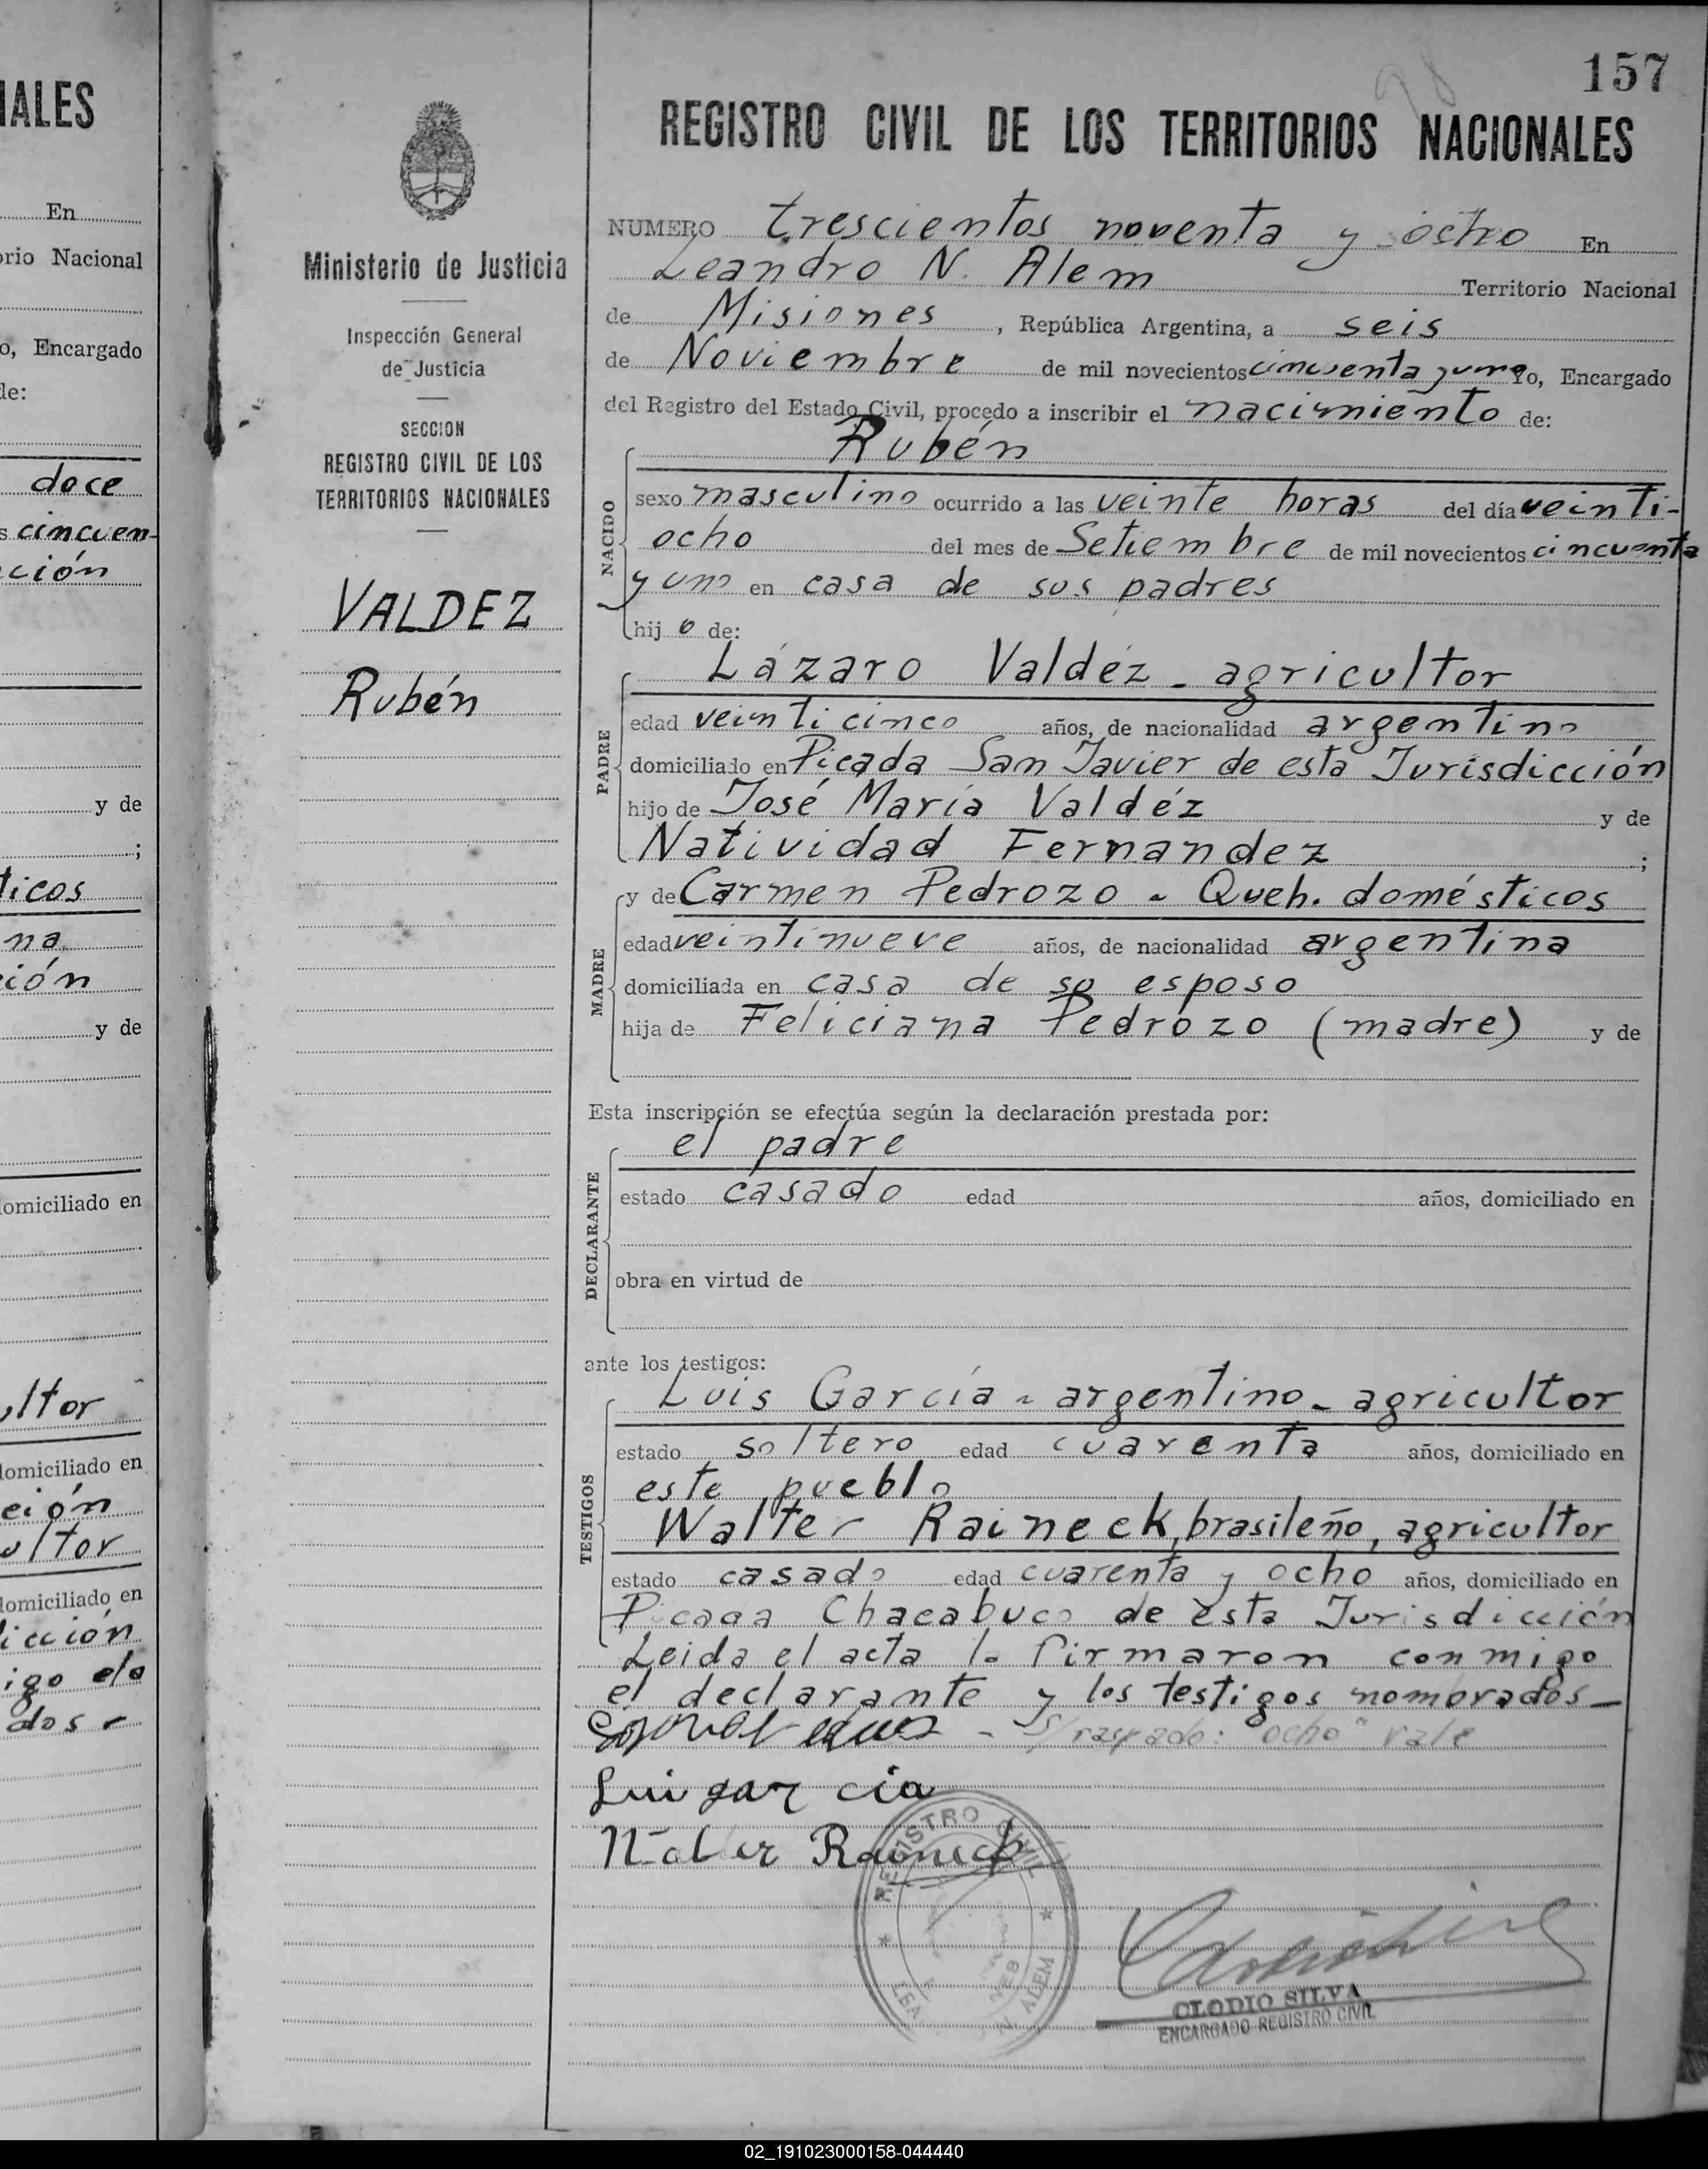 157
98
REGISTRO CIVIL DE LOS TERRITORIOS NACIONALES
Ministerio de Justicia
Inspección General
de Justicia
SECCION
REGISTRO CIVIL DE LOS
TERRITORIOS NACIONALES
VALDEZ
Rubén
NUMERO trescientos noventa y ocho En
Leandro N. Alem Territorio Nacional
de Misiones, República Argentina, a seis
de Noviembre de mil novecientos cincuenta y uno Yo, Encargado
del Registro del Estado Civil, procedo a inscribir el nacimiento de:
Rubén
NACIDO
sexo masculino ocurrido a las veinte horas del día veinti-
ocho del mes de Setiembre de mil novecientos cincuenta
y uno en casa de sus padres
hijo de:
Lázaro Valdéz - agricultor
PADRE
edad veinticinco años, de nacionalidad argentino
domiciliado en Picada San Javier de esta Jurisdicción
hijo de José María Valdéz y de
Natividad Fernandez ;
y de Carmen Pedrozo - Queh. domésticos
MADRE
edad veintinueve años, de nacionalidad argentina
domiciliada en casa de su esposo
hija de Feliciana Pedrozo (madre) y de
Esta inscripción se efectúa según la declaración prestada por:
el padre
DECLARANTE
estado casado edad años, domiciliado en
obra en virtud de
ante los testigos:
Luis García - argentino - agricultor
TESTIGOS
estado soltero edad cuarenta años, domiciliado en
este pueblo
Walter Raineck, brasileño, agricultor
estado casado edad cuarenta y ocho años, domiciliado en
Picada Chacabuco de esta Jurisdicción
Leida el acta la firmaron conmigo
el declarante y los testigos nombrados -
- S/raspado: "ocho" vale
Lui gar cia
Raineck
REGISTRO CIVIL
N. ALEM
CLODIO SILVA
ENCARGADO REGISTRO CIVIL
IALES
En
orio Nacional
o, Encargado
de:
doce
s cincuen-
ción
y de
;
ticos
na
ción
y de
domiciliado en
ultor
domiciliado en
ción
ultor
domiciliado en
icción
igo ela
dos -
02_191023000158-044440